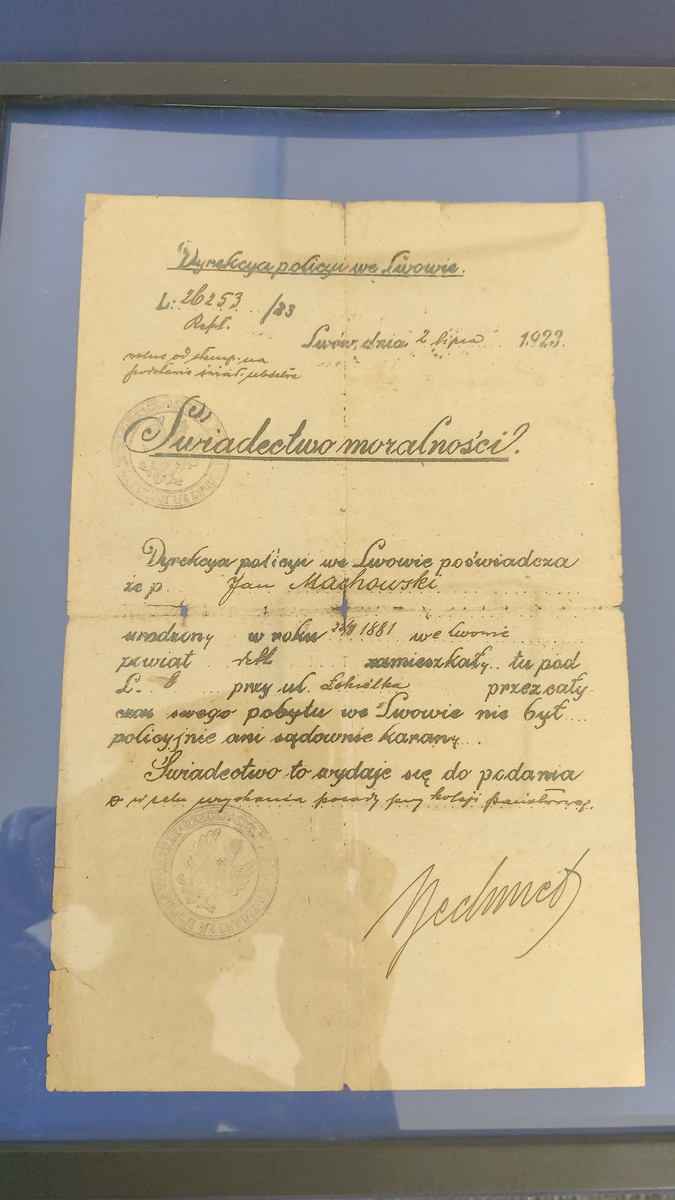 Dyrekcya policyi we Lwowie.
L: 26253 /23
Lwów, dnia 2 lipca 1923.
wolne od stemp. na
Świadectwo moralności.
Dyrekcya policyi we Lwowie poświadcza
że p. Jan Machowski
urodzony w roku 1881 we Lwowie
powiat zamieszkały tu pod
L. przy ul. przez cały
czas swego pobytu we Lwowie nie był
policyjnie ani sądownie karany.
Świadectwo to wydaje się do podania
w celu uzyskania posady przy kolei państwowej.